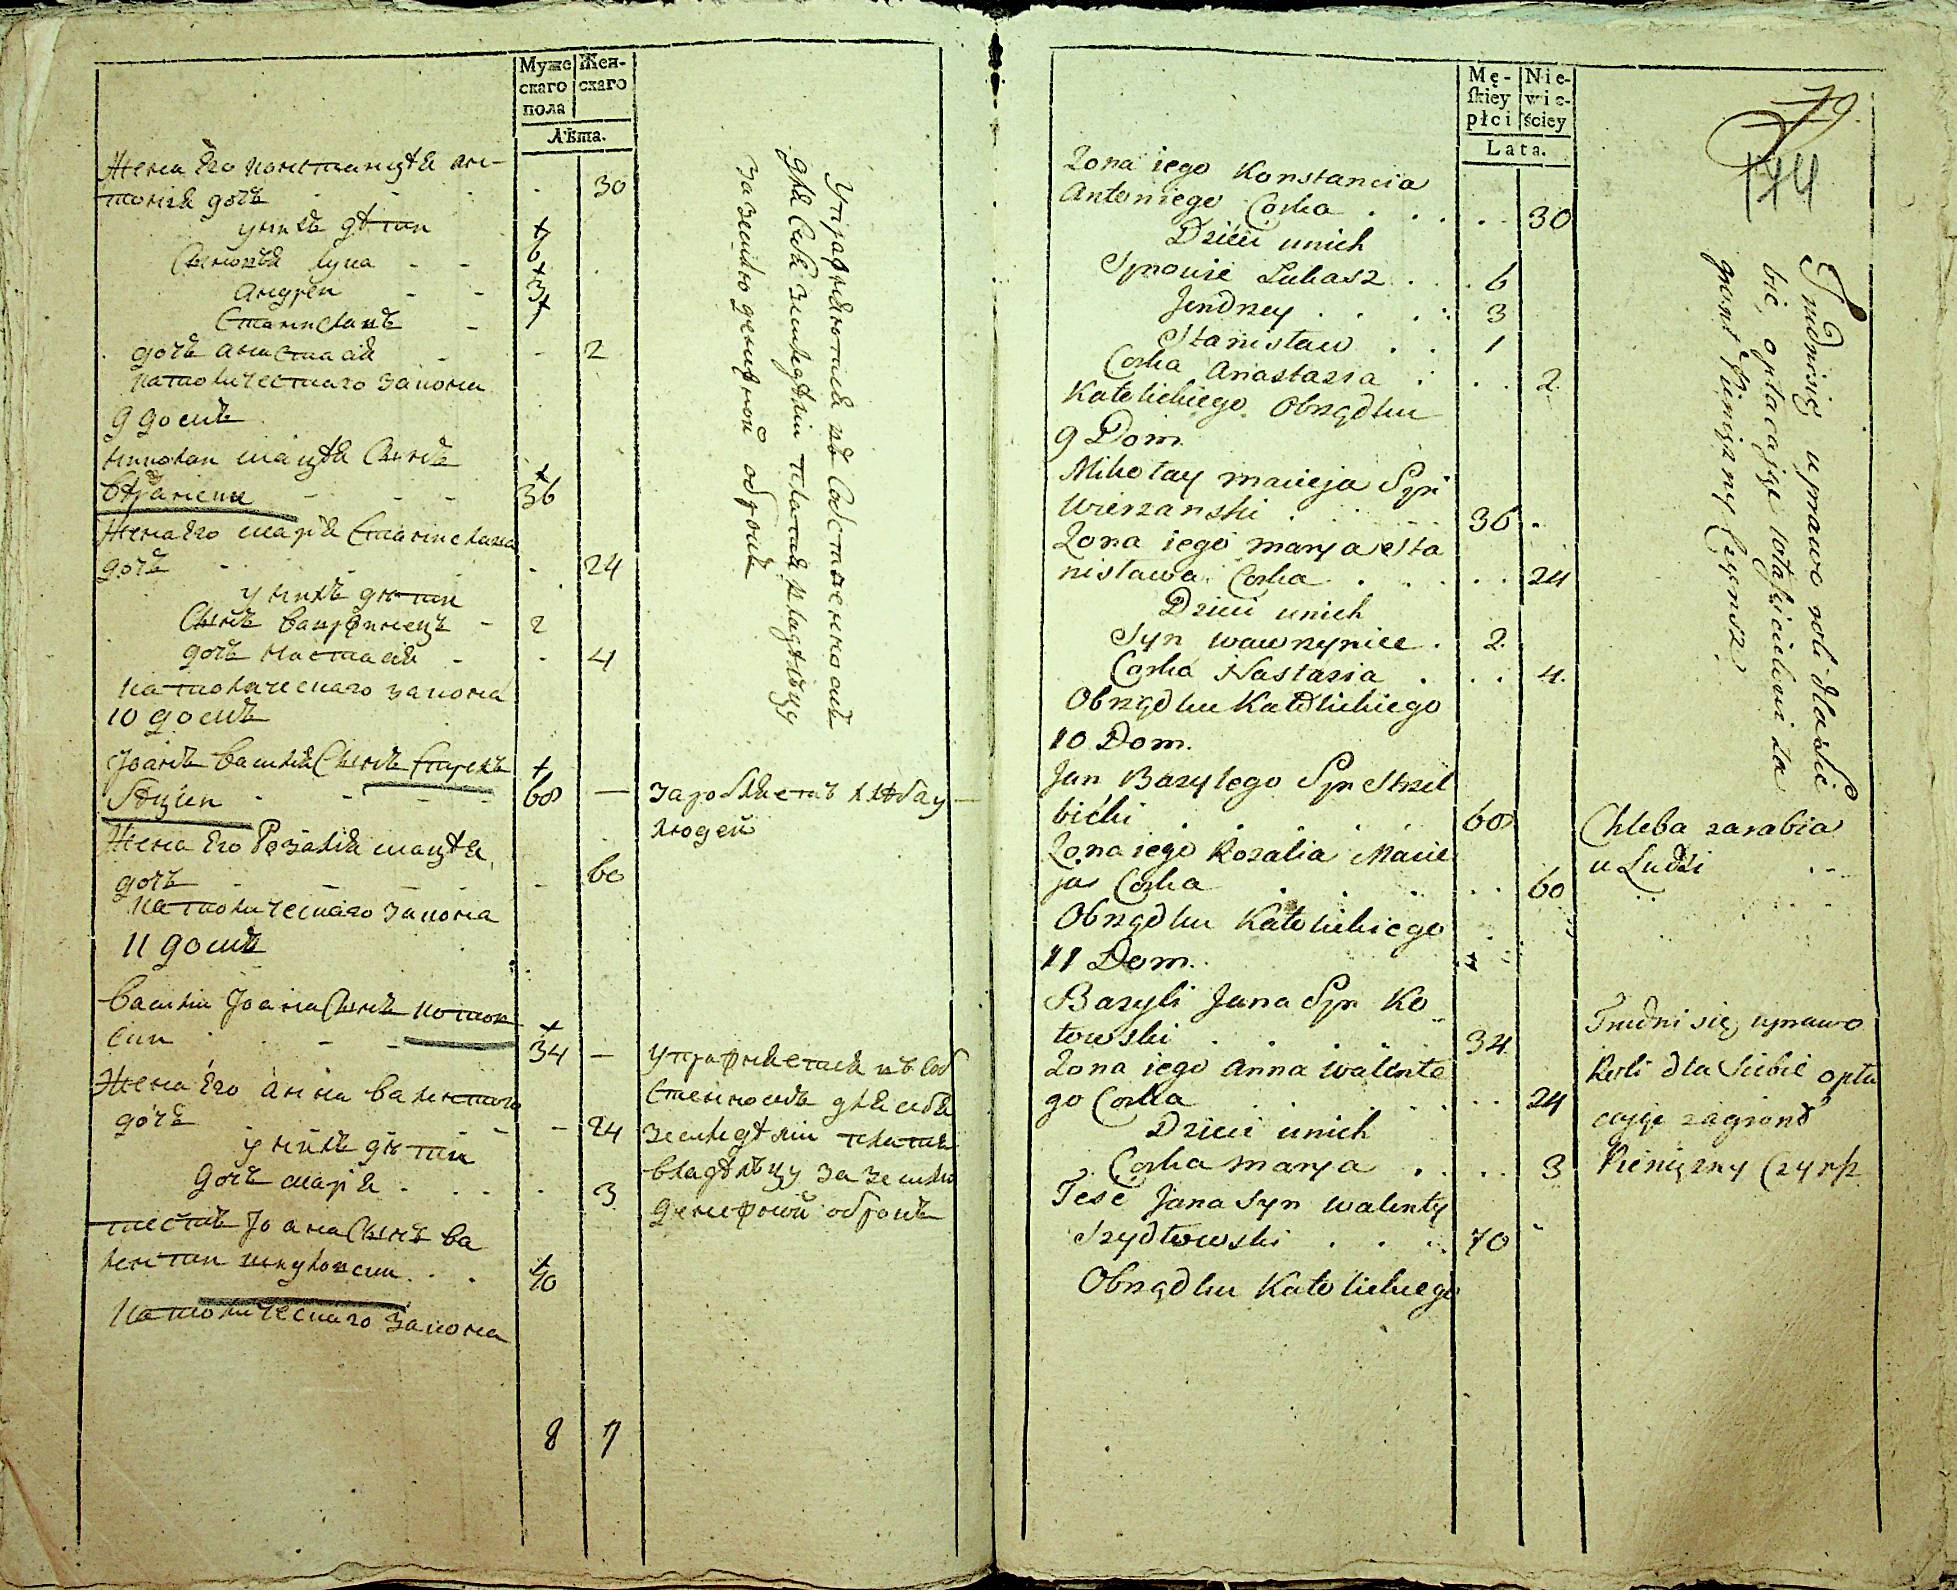 Муже
скаго
пола
Жен-
скаго
Лѣта.
Жена Его Констанцѣя Ан-
тонія дочь - - - 30
у нихъ дѣти
Сыновья Лука - - 6
Андрей - - 3
Станиславъ - 1
дочь Анастасія - - 2
Католическаго закона
9 домъ
Николай Мацѣя Сынъ
- - - 36
Жена Его Марія Станислава
дочь - - - 24
у нихъ дѣти
Сынъ Вавринецъ - 2
дочь Настасія - - 4
Католическаго закона
10 домъ
Іоанъ Василія Сынъ
- - - - 60 —
Жена Его Розалія Мацѣя
дочь - - - - 60
Католическаго закона
11 домъ
Василій Іоана Сынъ Котов
скій - - - 34 —
Жена Его Анна Валентаго
дочь - - - 24
у нихъ дѣти
дочь Марія - - - 3
тесть Іоана Сынъ Ва
лентій Шидловскій - - 70
Католическаго закона
8 7
Упражняются въ собственности
для себя земледѣліи платя владѣльцу
за землю денежной оброкъ
зарабляетъ хлѣба у —
людей
Упражняется въ соб
ственность для себя
земледѣліи платя
владѣльцу за землю
денежный оброкъ
Mę-
skiey
płci
Nie-
wie-
ściey
Lata.
79.
174
Zona iego Konstancia
Antoniego Corka . . . . . 30
Dzieci unich
Synowie Lukasz . . . 6
Jendrzey . . . . 3
Stanisław . . 1
Corka Anastazia . . . 2.
Katolickiego Obrządku
9 Dom.
Mikołay Macieja Syn
Wierzanski . . . . 36 .
Zona iego Marya Sta
nisława Corka . . . . . 24
Dzieci unich
Syn Wawrzyniec . 2.
Corka Nastazia . . . 4.
Obrządku Katolickiego
10 Dom.
Jan Bazylego Syn Strzel
bicki . . . . . 60
Zona iego Rozalia Macie
ja Corka . . . . . 60
Obrządku Katolickiego
11 Dom.
Bazyli Jana Syn Ko
towski . . . . . 34
Zona iego Anna Walente
go Corka . . . . . 24
Dzieci unich
Corka Marya . . . . 3
Tesć Jana Syn Walenty
Szydłowski . . . . 70
Obrządku Katolickiego
Trudnisię uprawo roli dla sie
bie, opłacając właścicielowi za
gront Pieniężny Czynsz.
Chleba zarabia
u Ludzi
Trudni się uprawo
Roli dla Siebie opła
cając zagront
Pieniężny Czynsz